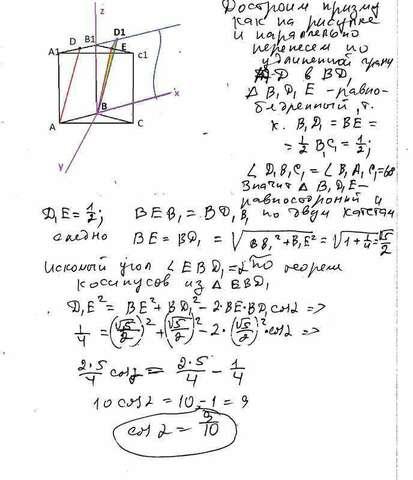 z
D
B1
D1
A1
E
c1
B
x
A
C
y
Достроим призму
как на рисунке
и параллельно
перенесем по
удлиненной грани
AD в BD₁
Δ B₁D₁E - равно-
бедренный, т.
к. B₁D₁ = BE =
= 1/2 B₁C₁ = 1/2;
∠ D₁B₁C₁ = ∠ B₁A₁C₁ = 60
Значит Δ B₁D₁E -
равносторонний и
D₁E = 1/2; BEB₁ = BD₁B₁ по двум катетам
следно BE = BD₁ = √(BB₁² + B₁E²) = √(1 + 1/4) = √5/2
Искомый угол ∠ EBD₁ = α по теореме
косинусов из Δ EBD₁
D₁E² = BE² + BD₁² - 2·BE·BD₁ cos α =>
1/4 = (√5/2)² + (√5/2)² - 2·(√5/2)² · cos α =>
2·5/4 cos α = 2·5/4 - 1/4
10 cos α = 10 - 1 = 9
cos α = 9/10